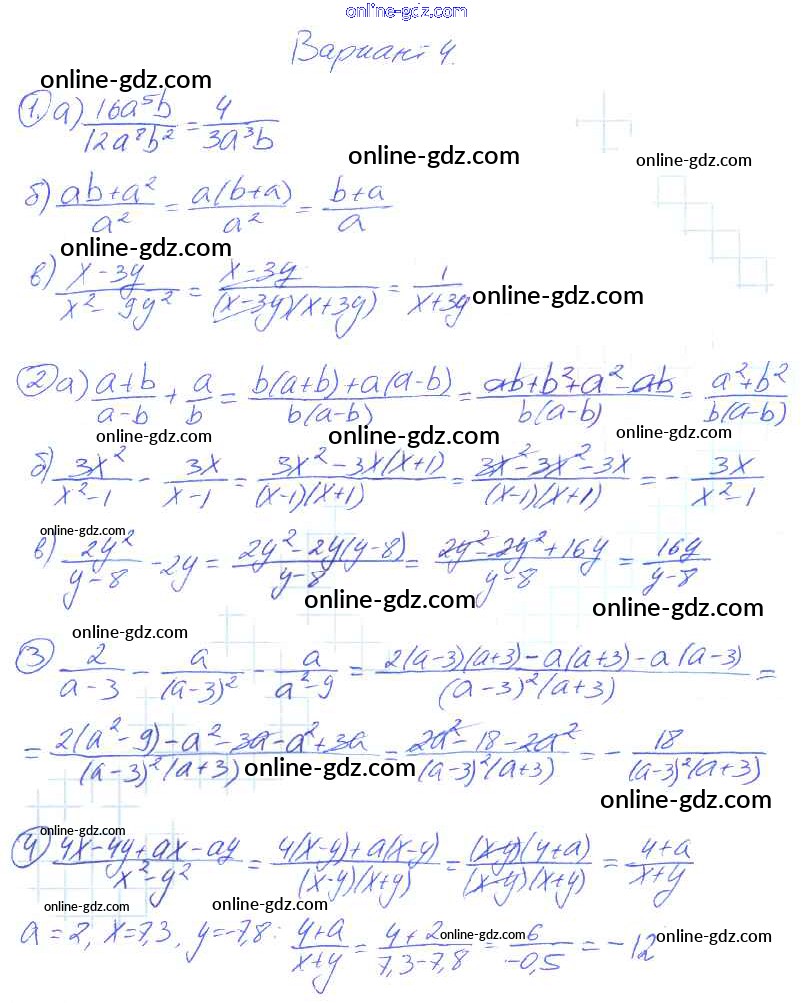 online-gdz.com
Вариант 4.
online-gdz.com
1. а) 16a⁵b/12a⁸b² = 4/3a³b
online-gdz.com
online-gdz.com
б) ab+a²/a² = a(b+a)/a² = b+a/a
online-gdz.com
в) x-3y/x²-9y² = x-3y/(x-3y)(x+3y) = 1/x+3y
online-gdz.com
2 а) a+b/a-b + a/b = b(a+b)+a(a-b)/b(a-b) = ab+b²+a²-ab/b(a-b) = a²+b²/b(a-b)
online-gdz.com online-gdz.com online-gdz.com
б) 3x²/x²-1 - 3x/x-1 = 3x²-3x(x+1)/(x-1)(x+1) = 3x²-3x²-3x/(x-1)(x+1) = - 3x/x²-1
online-gdz.com
в) 2y²/y-8 - 2y = 2y²-2y(y-8)/y-8 = 2y²-2y²+16y/y-8 = 16y/y-8
online-gdz.com online-gdz.com
online-gdz.com
3 2/a-3 - a/(a-3)² - a/a²-9 = 2(a-3)(a+3)-a(a+3)-a(a-3)/(a-3)²(a+3) =
= 2(a²-9)-a²-3a-a²+3a/(a-3)²(a+3) = 2a²-18-2a²/(a-3)²(a+3) = - 18/(a-3)²(a+3)
online-gdz.com
online-gdz.com
online-gdz.com
4 4x-4y+ax-ay/x²-y² = 4(x-y)+a(x-y)/(x-y)(x+y) = (x-y)(4+a)/(x-y)(x+y) = 4+a/x+y
online-gdz.com online-gdz.com online-gdz.com
a=2, x=7,3, y=-7,8: 4+a/x+y = 4+2/7,3-7,8 = 6/-0,5 = -12
online-gdz.com online-gdz.com